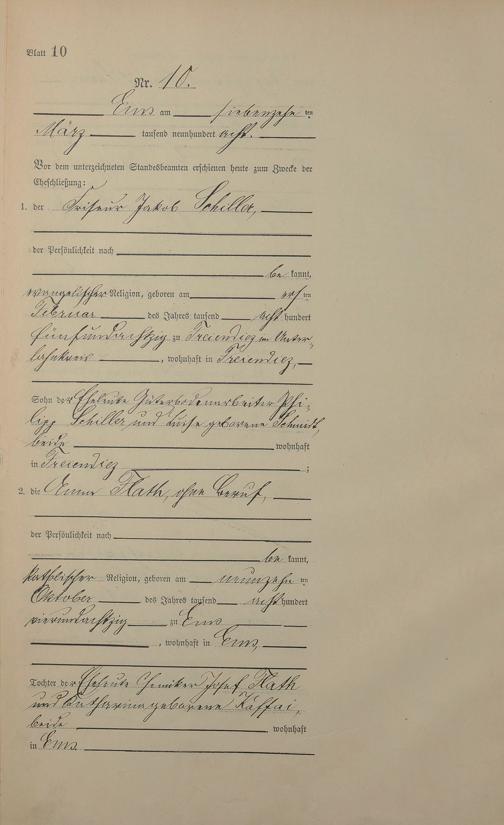 Blatt 10
Nr. 10.
Ems am siebenzehn ten
März tausend neunhundert acht.
Vor dem unterzeichneten Standesbeamten erschienen heute zum Zwecke der
Eheschließung:
1. der Friseur Jakob Schiller,
der Persönlichkeit nach
be kannt,
evangelischer Religion, geboren am ersten
Februar des Jahres tausend acht hundert
fünfundachtzig zu Freiendiez im Unter-
lahnkreis, wohnhaft in Freiendiez,
Sohn der Eheleute Güterbodenarbeiter Phi-
lipp Schiller und Luise geborene Schmidt,
beide wohnhaft
in Freiendiez;
2. die Anna Flath, ohne Beruf,
der Persönlichkeit nach
be kannt,
katholischer Religion, geboren am neunzehn ten
Oktober des Jahres tausend acht hundert
vierundachtzig zu Ems
, wohnhaft in Ems,
Tochter der Eheleute Josef Flath
und Katharina geborene
beide wohnhaft
in Ems